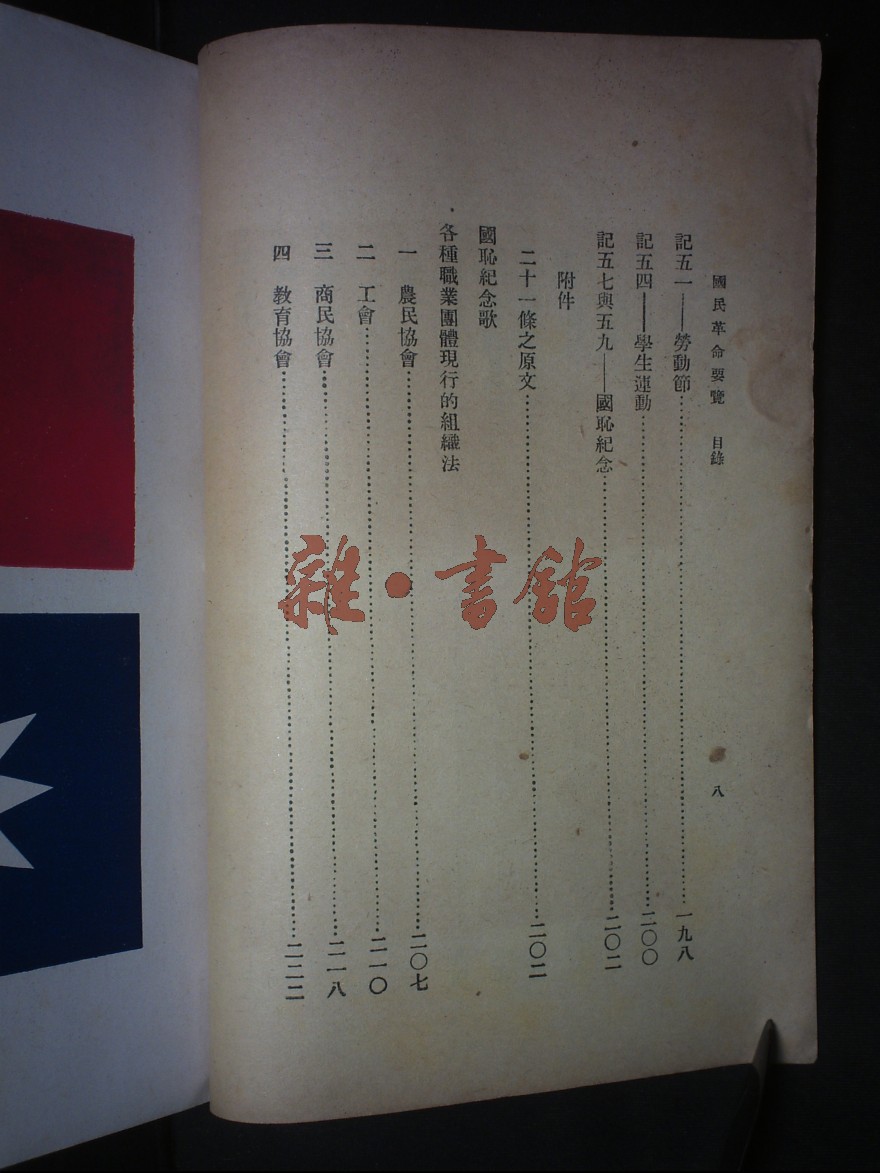 國民革命要覽　目錄　八
記五一——勞動節…………一九八
記五四——學生運動…………二〇〇
記五七與五九——國恥紀念…………二〇二
附件
二十一條之原文…………二〇二
國恥紀念歌
各種職業團體現行的組織法
一　農民協會…………二〇七
二　工會…………二一〇
三　商民協會…………二一八
四　教育協會…………二二二
雜·書館